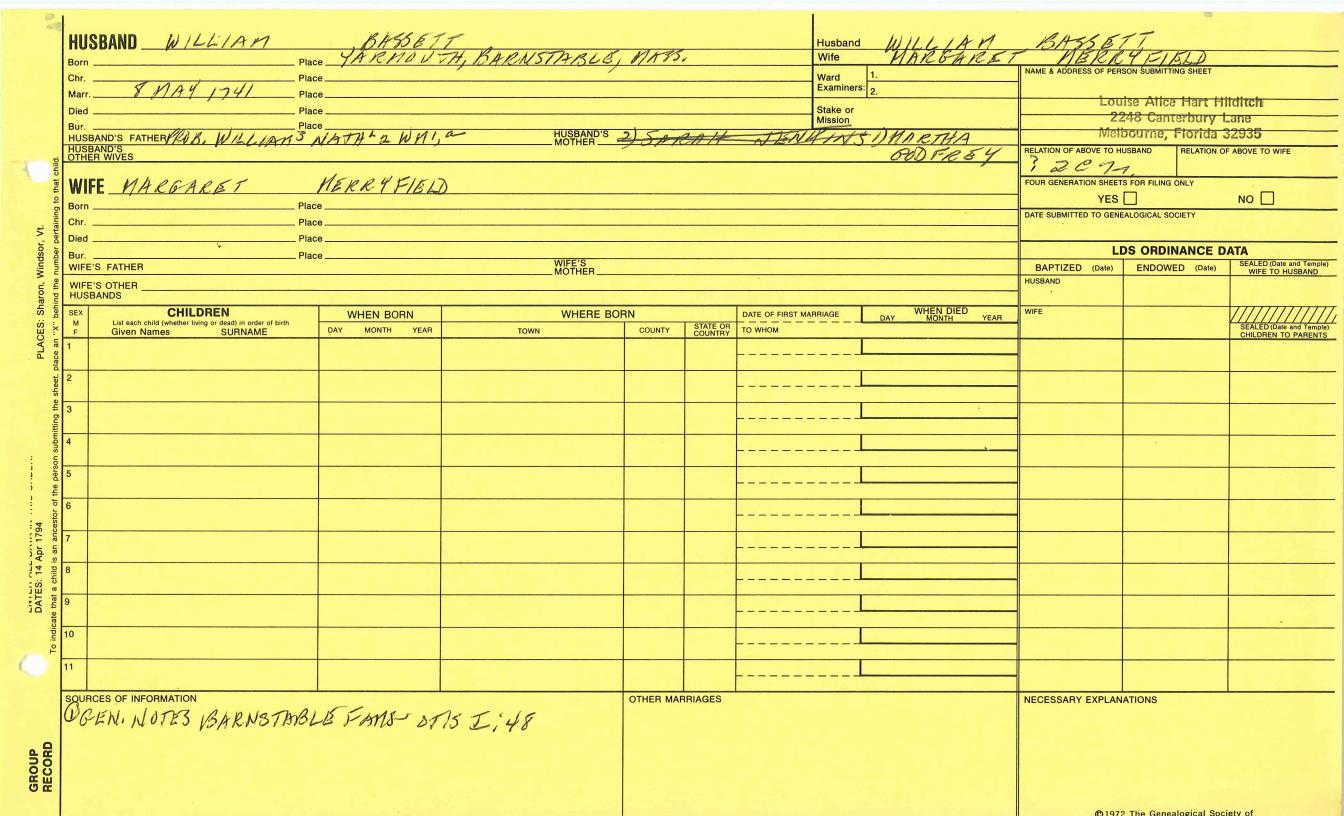 HUSBAND WILLIAM BASSETT
Born Place YARMOUTH, BARNSTABLE, MASS.
Chr. Place
Marr. 8 MAY 1741 Place
Died Place
Bur. Place
HUSBAND'S FATHER PROB. WILLIAM³ NATH² WM¹
HUSBAND'S MOTHER 2) SARAH JENKINS 1) MARTHA GODFREY
HUSBAND'S OTHER WIVES
WIFE MARGARET MERRYFIELD
Born Place
Chr. Place
Died Place
Bur. Place
WIFE'S FATHER WIFE'S MOTHER
WIFE'S OTHER HUSBANDS
Husband WILLIAM BASSETT
Wife MARGARET MERRYFIELD
Ward Examiners: 1.
2.
Stake or Mission
NAME & ADDRESS OF PERSON SUBMITTING SHEET
Louise Alice Hart Hilditch
2248 Canterbury Lane
Melbourne, Florida 32935
RELATION OF ABOVE TO HUSBAND RELATION OF ABOVE TO WIFE
FOUR GENERATION SHEETS FOR FILING ONLY
YES NO
DATE SUBMITTED TO GENEALOGICAL SOCIETY
LDS ORDINANCE DATA
BAPTIZED (Date) ENDOWED (Date) SEALED (Date and Temple) WIFE TO HUSBAND
HUSBAND
WIFE
SEALED (Date and Temple) CHILDREN TO PARENTS
SEX M F
CHILDREN
List each child (whether living or dead) in order of birth
Given Names SURNAME
WHEN BORN
DAY MONTH YEAR
WHERE BORN
TOWN COUNTY STATE OR COUNTRY
DATE OF FIRST MARRIAGE
TO WHOM
WHEN DIED
DAY MONTH YEAR
1
2
3
4
5
6
7
8
9
10
11
SOURCES OF INFORMATION
① GEN. NOTES BARNSTABLE FAMS OTIS I:48
OTHER MARRIAGES
NECESSARY EXPLANATIONS
©1972 The Genealogical Society of
PLACES: Sharon, Windsor, Vt.
DATES: 14 Apr 1794
To indicate that a child is an ancestor of the person submitting the sheet, place an "X" behind the number pertaining to that child.
GROUP RECORD